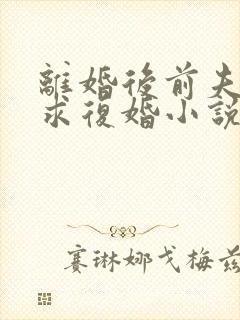 離婚後前夫
求復婚小說
賽琳娜戈梅茲